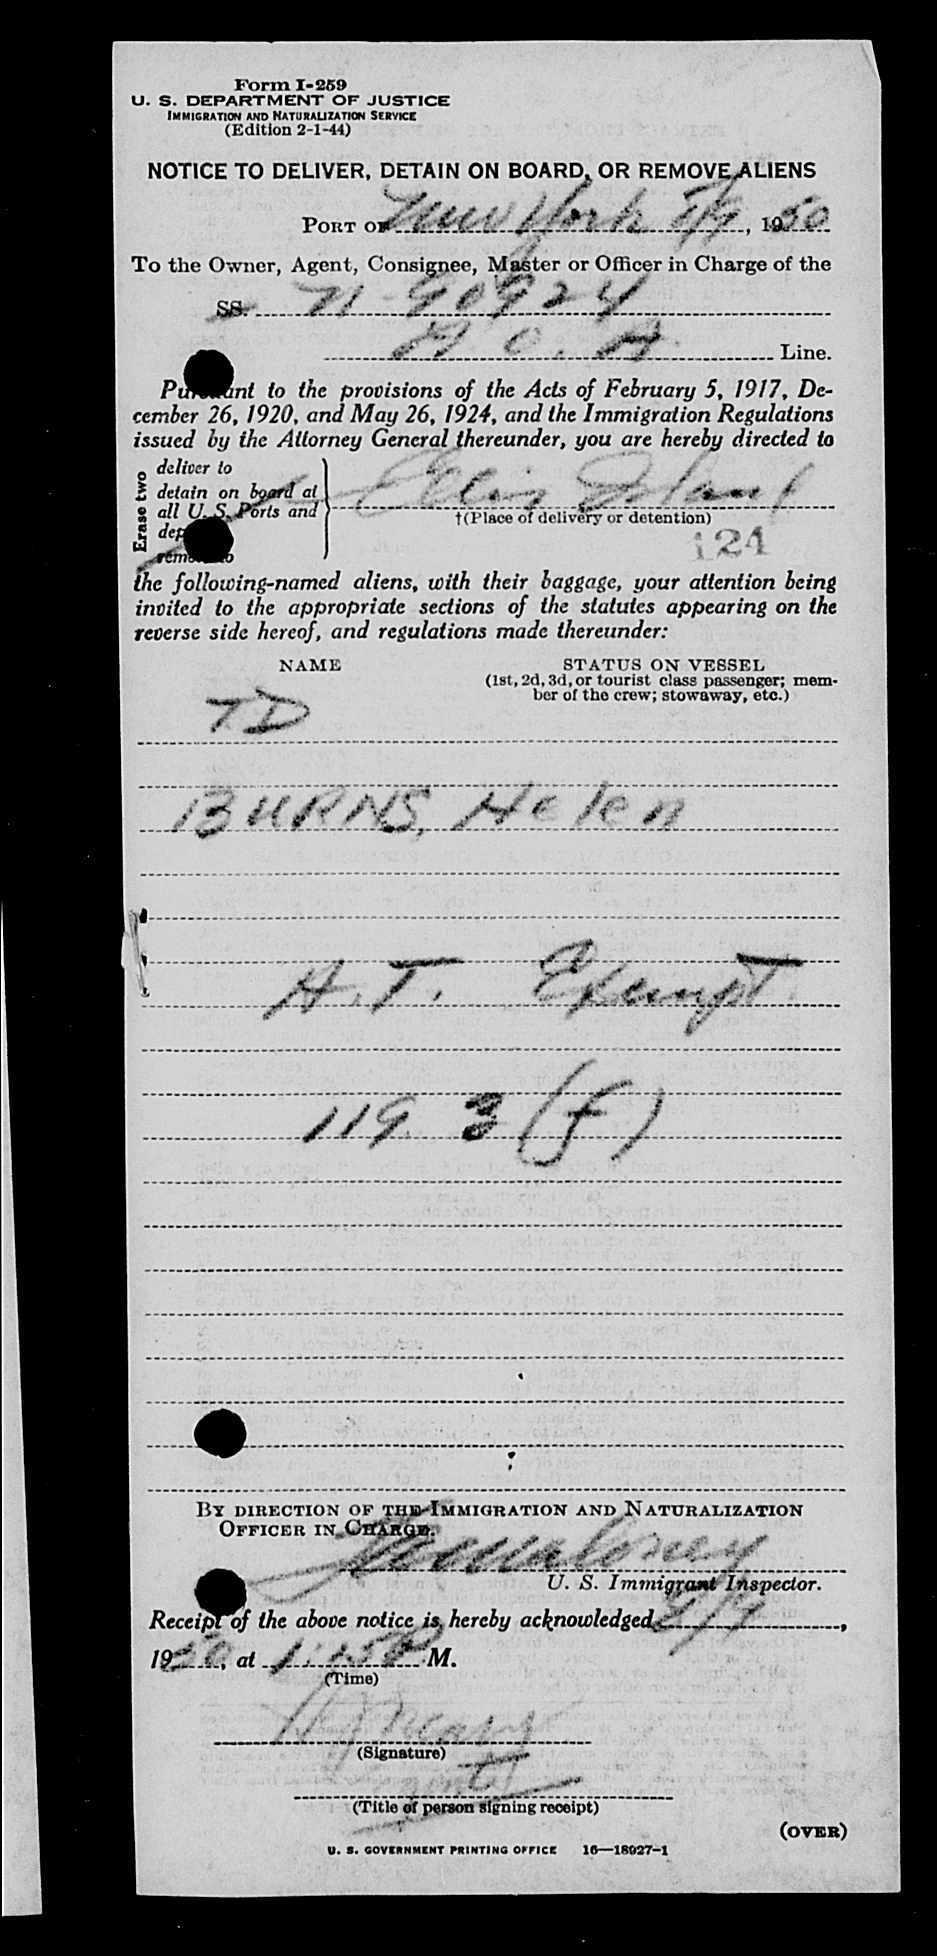 Form I-259
U. S. DEPARTMENT OF JUSTICE
IMMIGRATION AND NATURALIZATION SERVICE
(Edition 2-1-44)
NOTICE TO DELIVER, DETAIN ON BOARD, OR REMOVE ALIENS
PORT OF New York 2/9, 1950
To the Owner, Agent, Consignee, Master or Officer in Charge of the
SS. N-90924
A O. A. Line.
Pursuant to the provisions of the Acts of February 5, 1917, De-
cember 26, 1920, and May 26, 1924, and the Immigration Regulations
issued by the Attorney General thereunder, you are hereby directed to
Erase two
deliver to
detain on board at
all U. S. Ports and
Ellis Island
†(Place of delivery or detention)
remove to
124
the following-named aliens, with their baggage, your attention being
invited to the appropriate sections of the statutes appearing on the
reverse side hereof, and regulations made thereunder:
NAME STATUS ON VESSEL
(1st, 2d, 3d, or tourist class passenger; mem-
ber of the crew; stowaway, etc.)
T.D
BURNS, Helen
H.T. Exempt
119. 3 (f)
BY DIRECTION OF THE IMMIGRATION AND NATURALIZATION
OFFICER IN CHARGE.
U. S. Immigrant Inspector.
Receipt of the above notice is hereby acknowledged 2/9,
1950, at 1:15P M.
(Time)
(Signature)
(Title of person signing receipt)
(OVER)
U. S. GOVERNMENT PRINTING OFFICE 16—18927-1